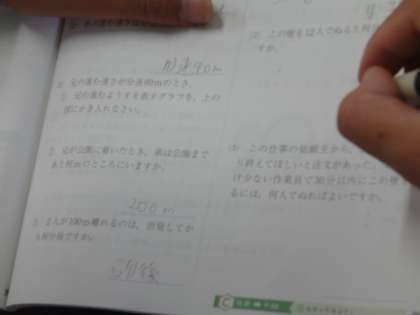 分速40m
兄の進む速さが分速60mのとき、
兄の進むようすを表すグラフを、上の
図にかき入れなさい。
兄が公園に着いたとき、弟は公園まで
あと何mのところにいますか。
200m
2人が100m離れるのは、出発してか
ら何分後ですか。
5分後
(2) 上の壁を12人でぬると何
すか。
(3) この仕事の依頼主から、
り終えてほしいと注文があった。
け少ない作業員で30分以内にこの壁
るには、何人でぬればよいですか。